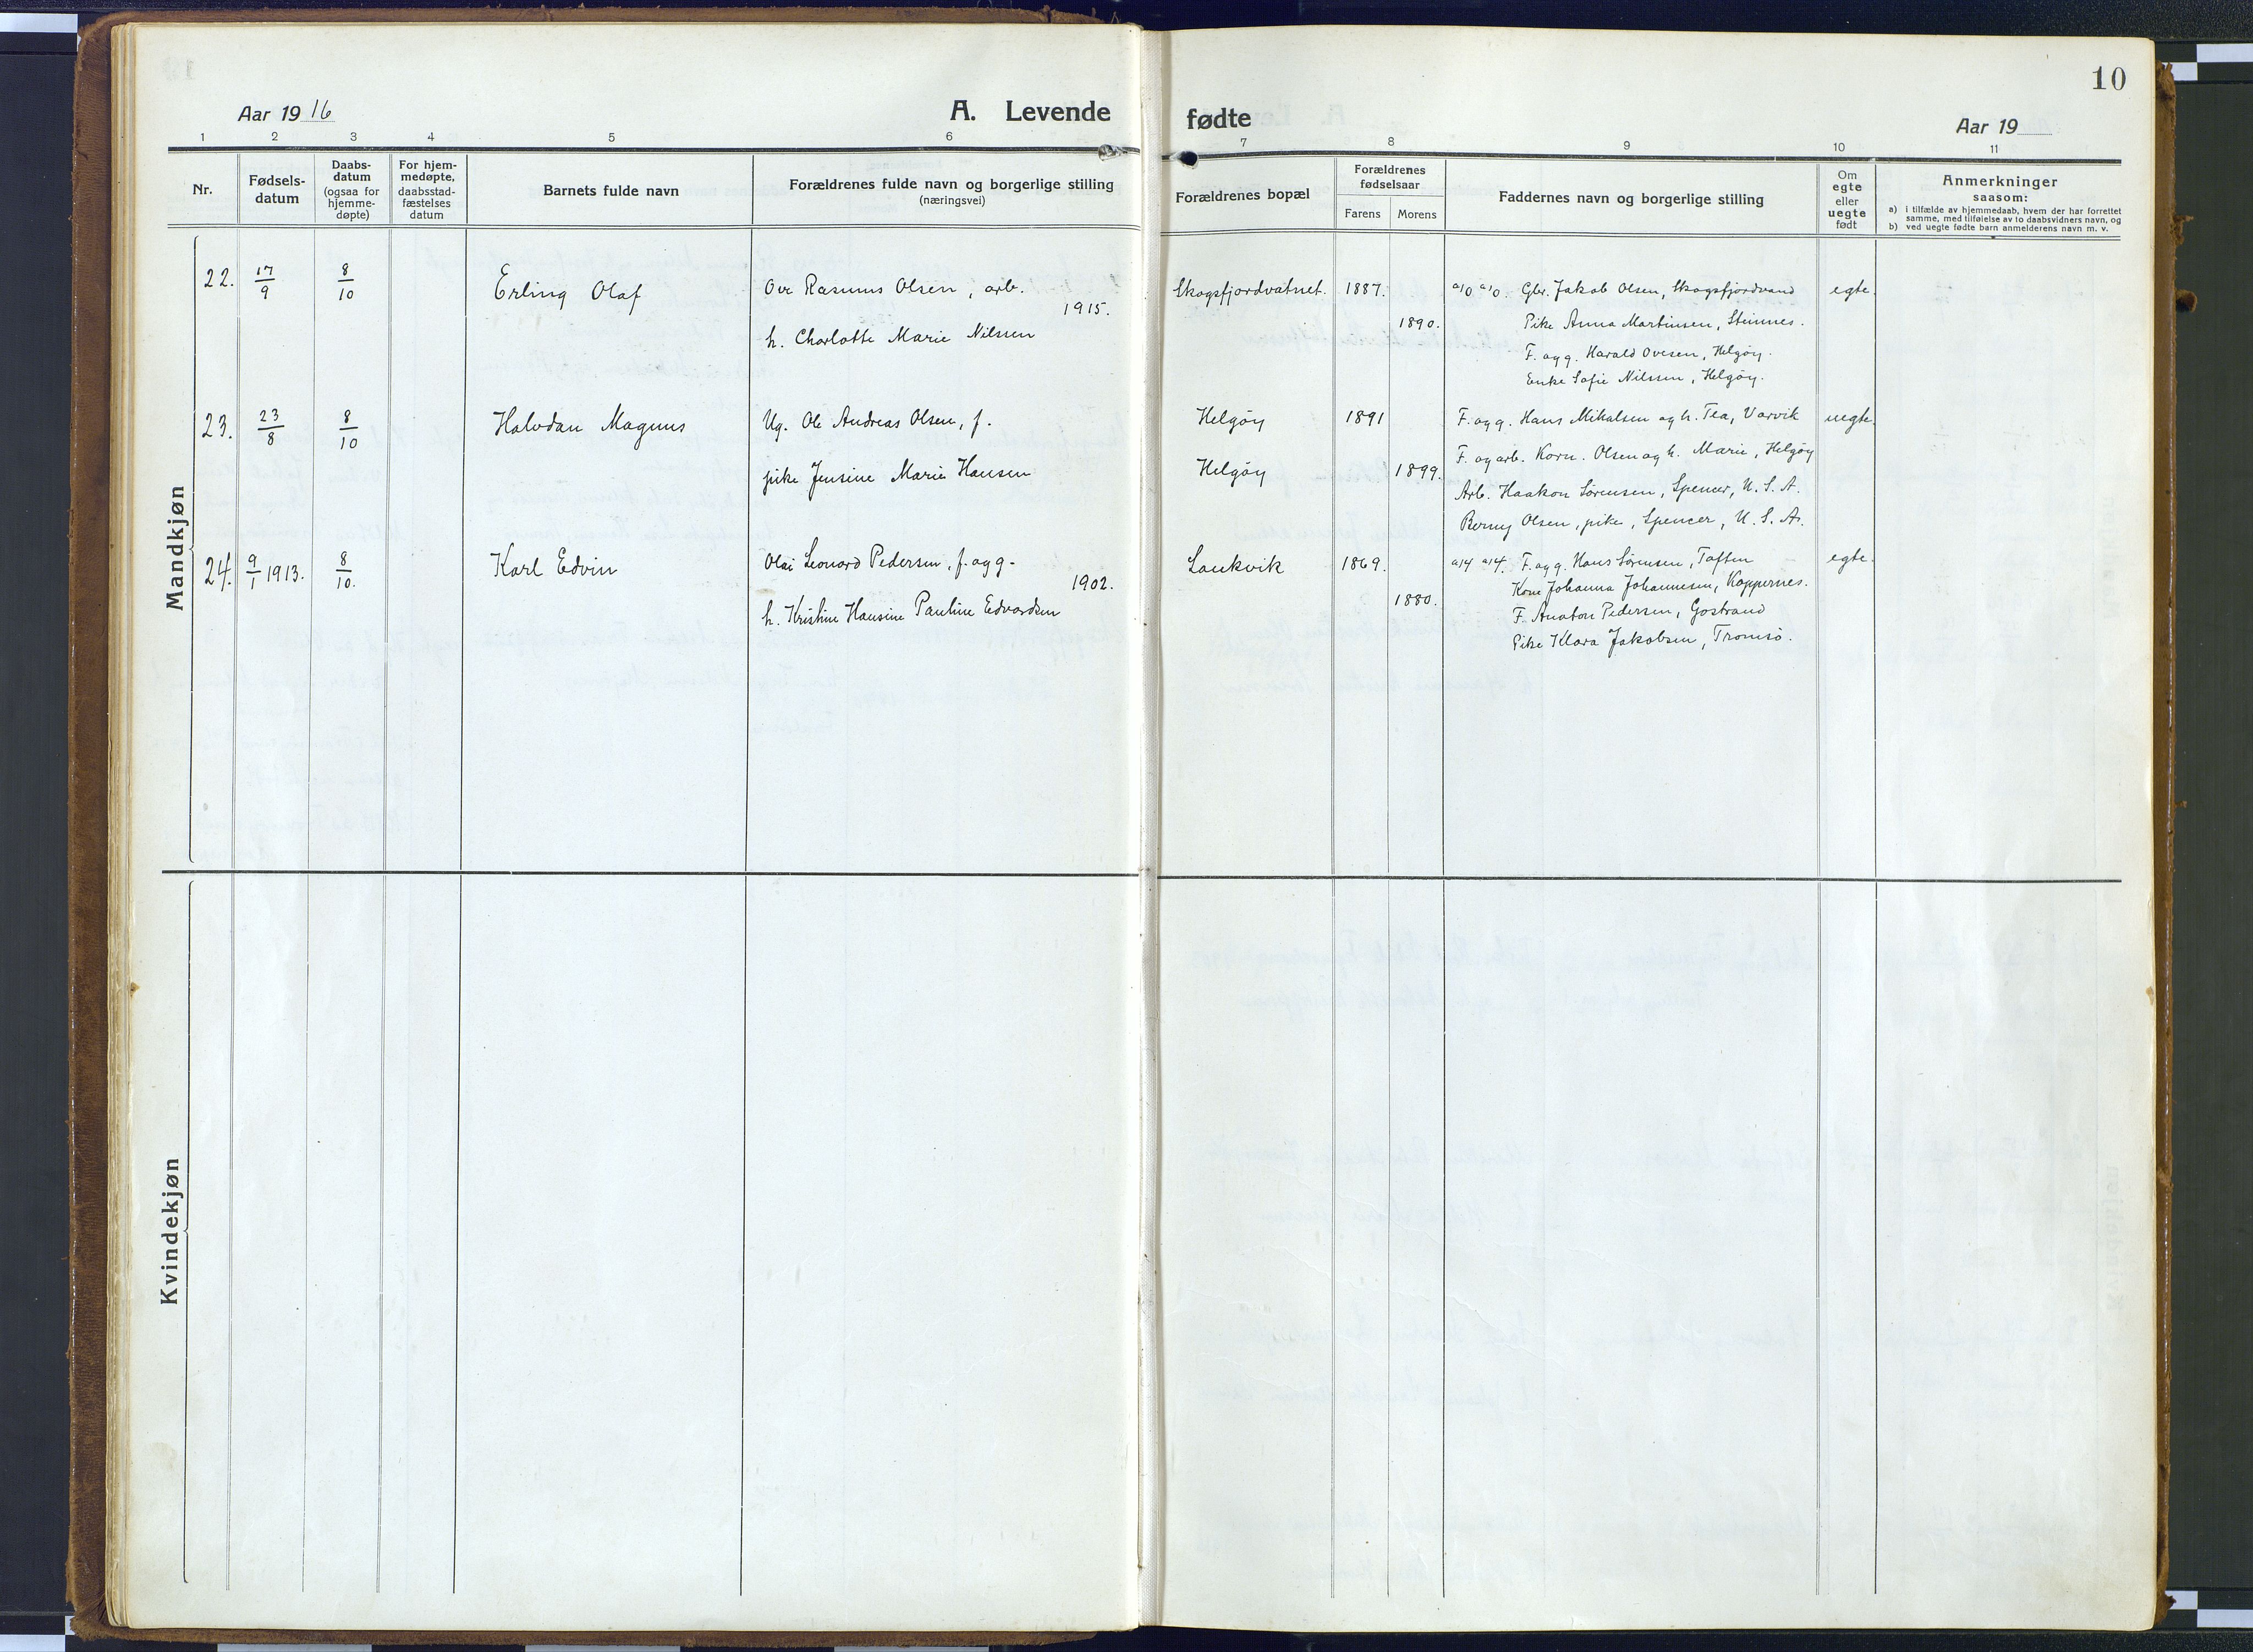 10
Aar 1916
A. Levende fødte
Aar 19
1 2 3 4 5 6 7 8 9 10 11
Nr.
Fødsels-
datum
Daabs-
datum
(ogsaa for
hjemme-
døpte)
For hjem-
medøpte,
daabsstad-
fæstelses
datum
Barnets fulde navn
Forældrenes fulde navn og borgerlige stilling
(næringsvei)
Forældrenes bopæl
Forældrenes
fødselsaar
Farens Morens
Faddernes navn og borgerlige stilling
Om
egte
eller
uegte
født
Anmerkninger
saasom:
a) i tilfælde av hjemmedaab, hvem der har forrettet
samme, med tilføielse av to daabsvidners navn, og
b) ved uegte fødte barn anmelderens navn m. v.
Mandkjøn
22. 17/9 8/10 Erling Olaf
Ove Rasmus Olsen, arb.
1915.
h. Charlotte Marie Nilssen
Skogsfjordvatnet. 1887.
1890.
a/0 a/0. Gbr. Jakob Olsen, Skogsfjordvand
Pike Anna Martinsen, Stinnes.
F. og g. Harald Ovesen, Helgøy.
Enke Sofie Nilssen, Helgøy.
egte.
23. 23/8 8/10 Halvdan Magnus
Ug. Ole Andreas Olsen, f.
pike Jensine Marie Hansen
Helgøy 1891
Helgøy 1899.
F. og g. Hans Mikalsen og h. Tea, Vorvik
F. og arb. Korn. Olsen og h. Marie, Helgøy
Arb. Haakon Sørensen, Spencer, U. S. A.
Berny Olsen, pike, Spencer, U. S. A.
uegte.
24. 9/1 1913. 8/10. Karl Edvin
Olai Leonard Pedersen, f. og g.
1902.
h. Kristine Hansine Pauline Edvardsen
Sankvik 1869.
1880.
a/4 a/4. F. og g. Hans Sørensen, Toften
Kone Johanna Johannesen, Koppernes.
F. Anaton Pedersen, Gostrand
Pike Klara Jakobsen, Tromsø.
egte.
Kvindekjøn